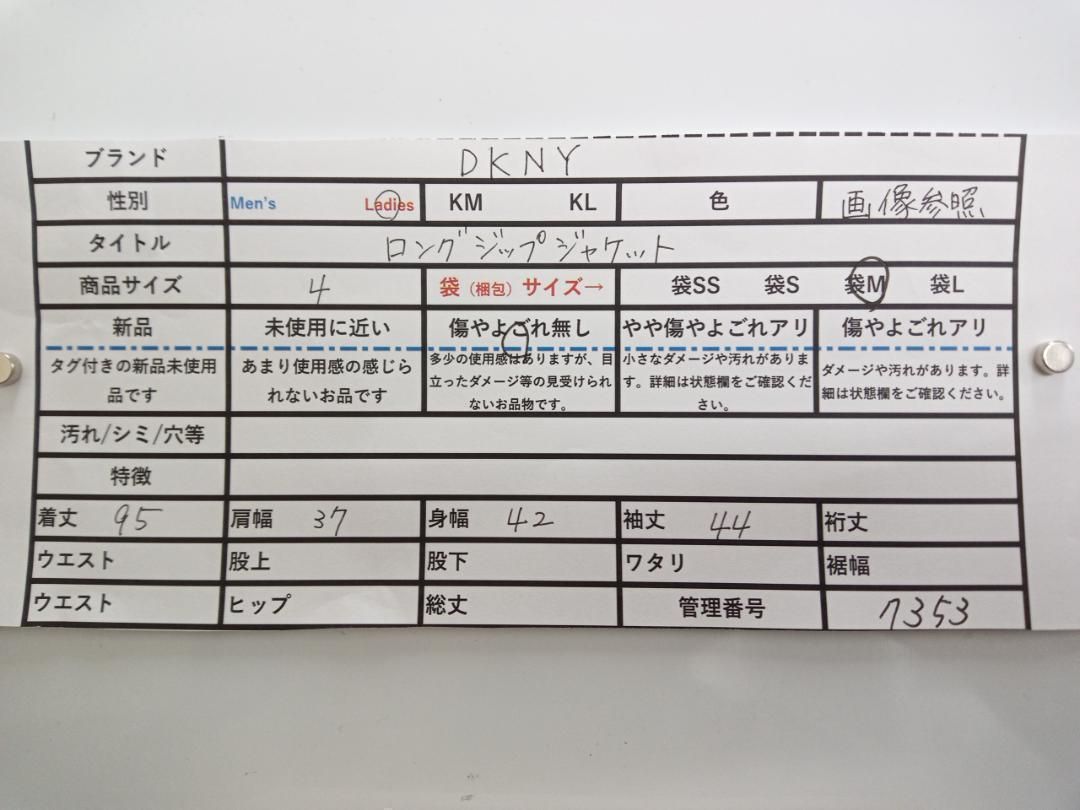 ブランド DKNY
性別 Men's Ladies KM KL 色 画像参照
タイトル ロングジップジャケット
商品サイズ 4 袋（梱包）サイズ→ 袋SS 袋S 袋M 袋L
新品 未使用に近い 傷やよごれ無し やや傷やよごれアリ 傷やよごれアリ
タグ付きの新品未使用品です あまり使用感の感じられないお品です 多少の使用感はありますが、目立ったダメージ等の見受けられないお品物です。 小さなダメージや汚れがあります。詳細は状態欄をご確認ください。 ダメージや汚れがあります。詳細は状態欄をご確認ください。
汚れ/シミ/穴等
特徴
着丈 95 肩幅 37 身幅 42 袖丈 44 裄丈
ウエスト 股上 股下 ワタリ 裾幅
ウエスト ヒップ 総丈 管理番号 7353